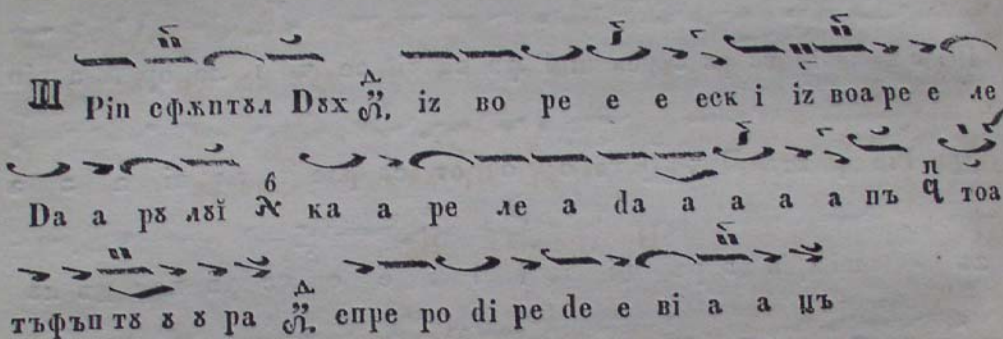 Ш Pin сфѫптȣл Dȣх iz во ре е е еск i iz воа ре е ле
Da а рȣ лȣĭ ка а ре ле а da а а а а пъ тоа
тъ фъп тȣ ȣ ȣ ра спре ро di ре de е вi а а цъ